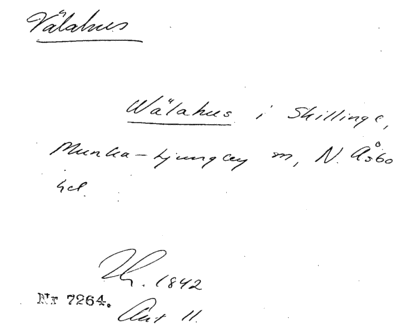 Välahus
Wälahus i Skillinge,
Munka-Ljungby sn, N. Åsbo
hd.
Th. 1842
Nr 7264.
Avt 11.